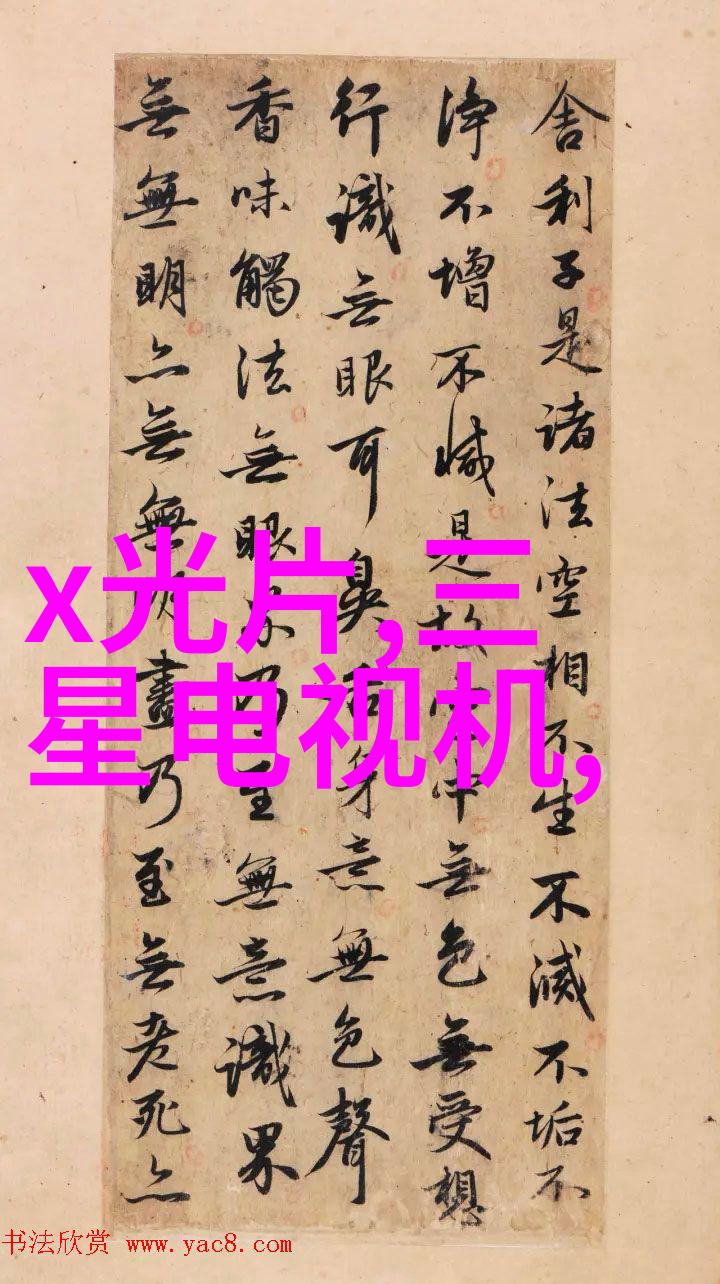 舍利子是諸法空相不生不滅不垢不
淨不增不減是故空中無色無受想
行識無眼耳鼻舌身意無色聲
香味觸法無眼界乃至無意識界
無無明亦無無明盡乃至無老死亦
x光片,三
星电视机,
书法欣赏 www.yac8.com